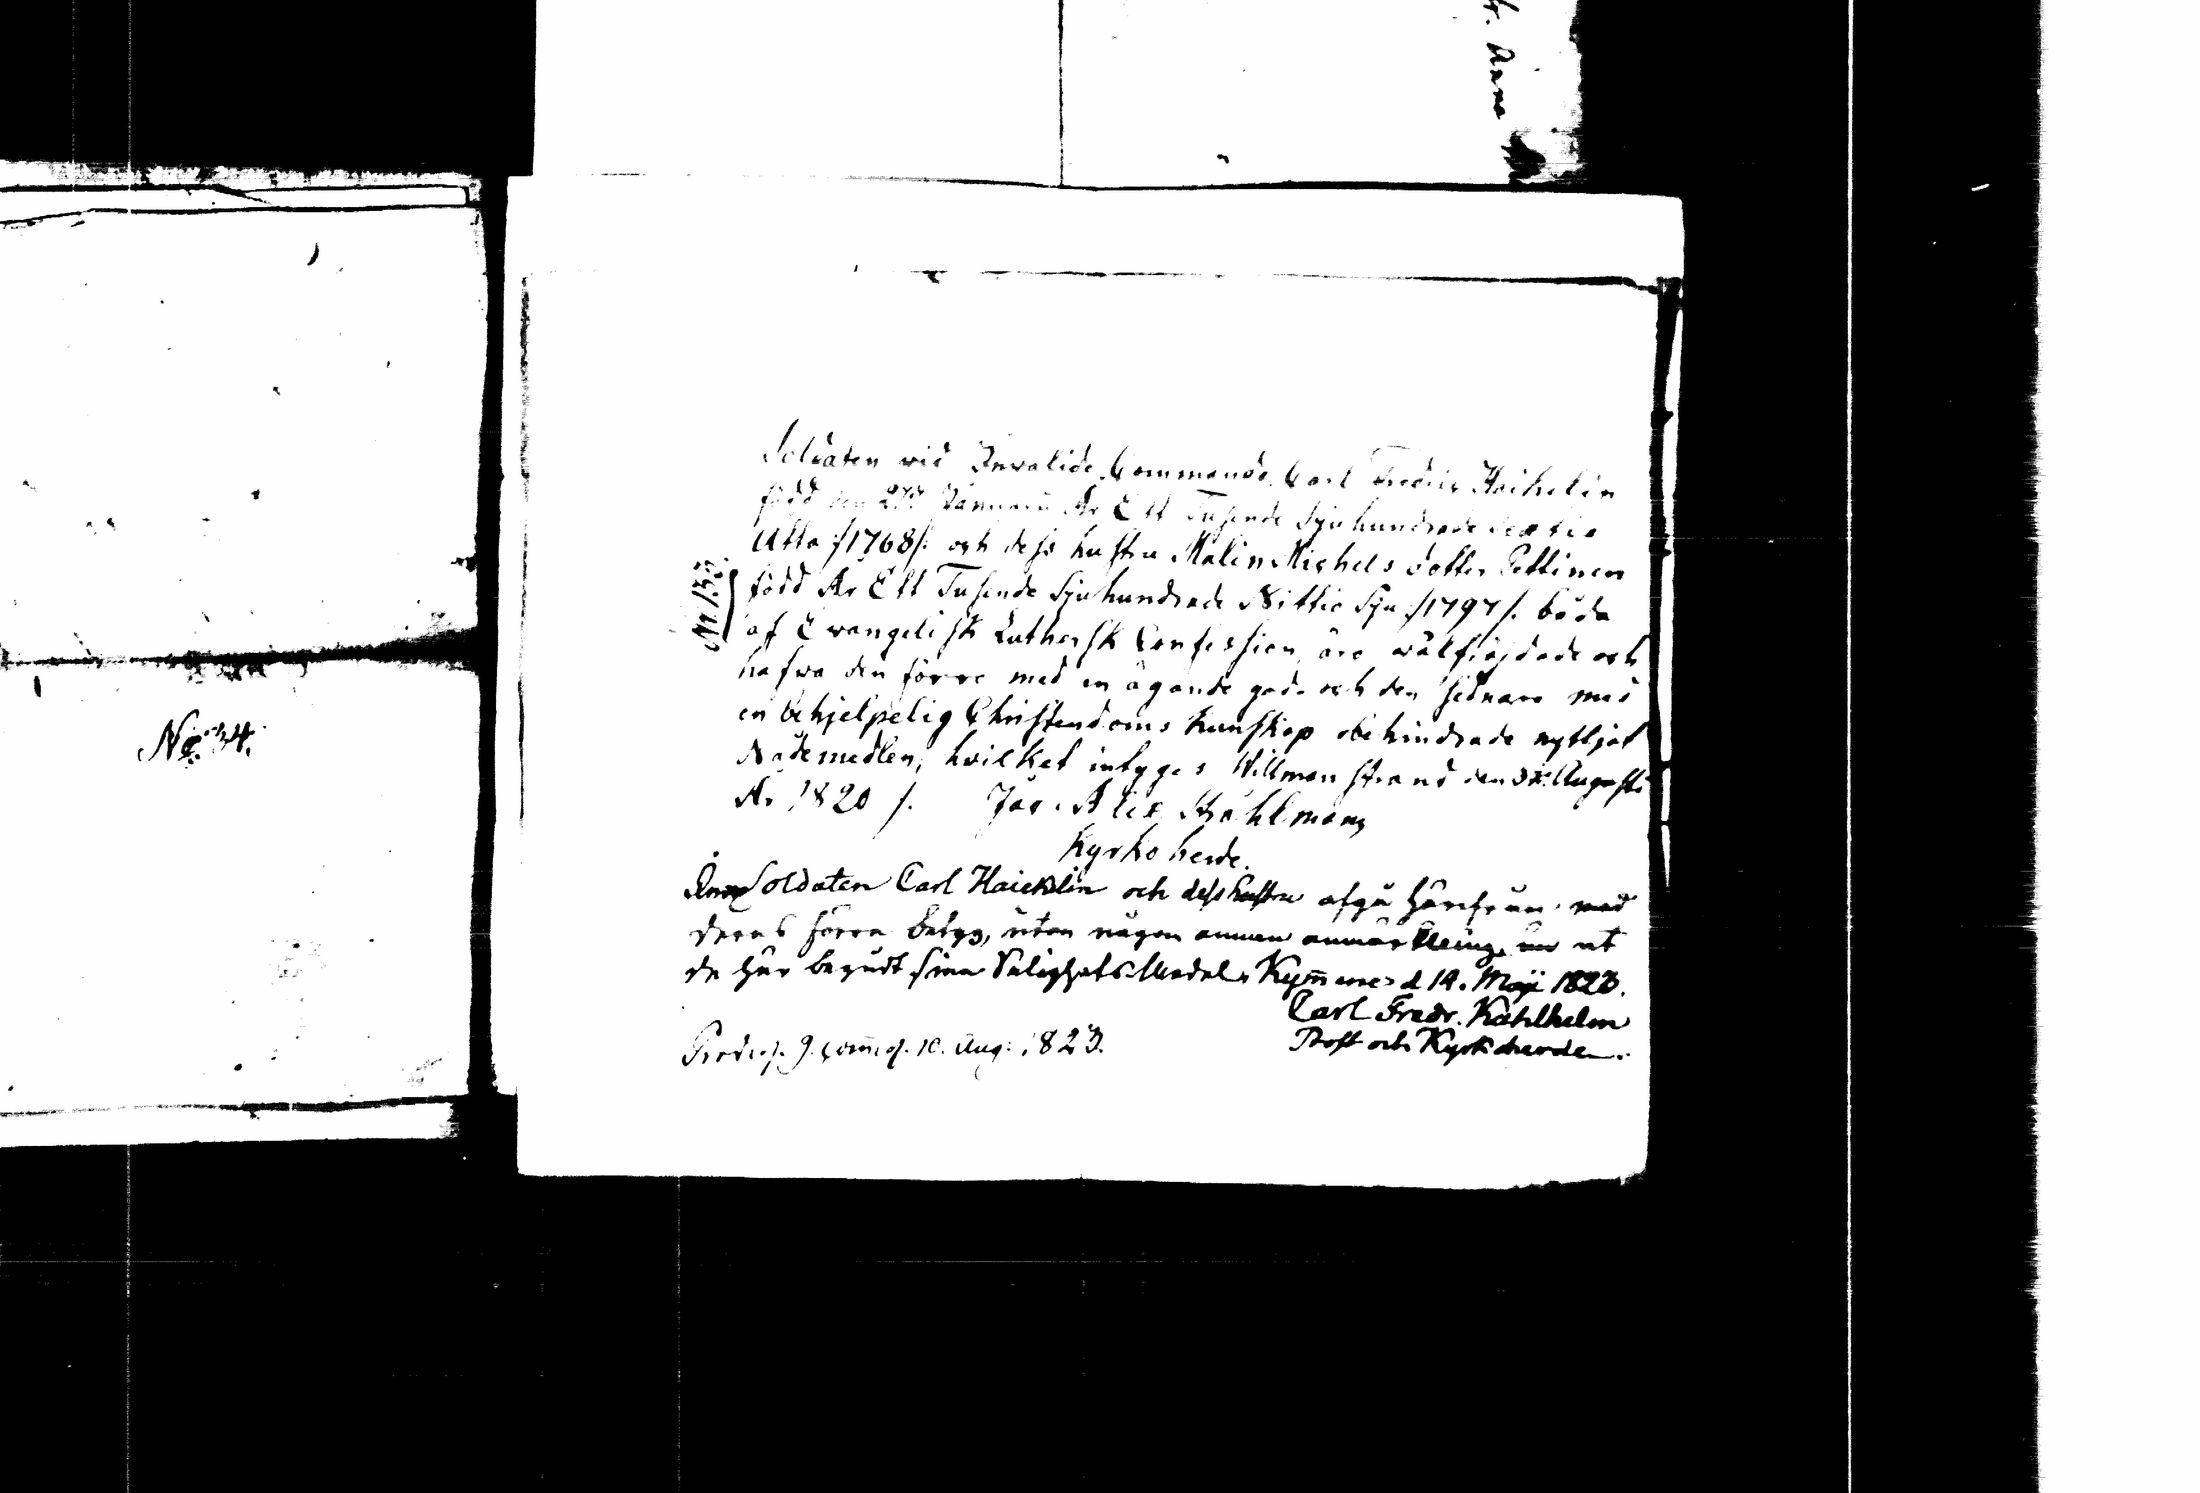 fr. Anna
No 34.
No 133.
Soldaten wid Invalide Commando Carl Fredric Haikelin
född den 27 Januarii År Ett Tusende Sjuhundrade Sextio
Åtta /:1768/: och dess hustru Malin Michels dotter Pettinen
född År Ett Tusende Sjuhundrade Nittio Sju /:1797/: båda
af Evangelisk Luthersk Confession, äro wälfräjdade och
hafwa den förre med en ägande god och den sednare med
en behjelpelig Christendoms kunskap obehindrade nyttjat
Nademedlen, hvilket intygas Willmanstrand den Augusti
År 1820 /. Alex. Strahlman,
Kyrkoherde.
Soldaten Carl Haicklin och dess hustru afgå härifrån med
deras förra betyg, utan någon annan anmärkning, än at
de här begådt sina Salighets Medel. Kymmene d 14. Maji 1823.
Carl Fredr. Kahlhelm
Prost och Kyrkoherde.
Prod. d. 9. Comm. d. 10. Aug: 1823.